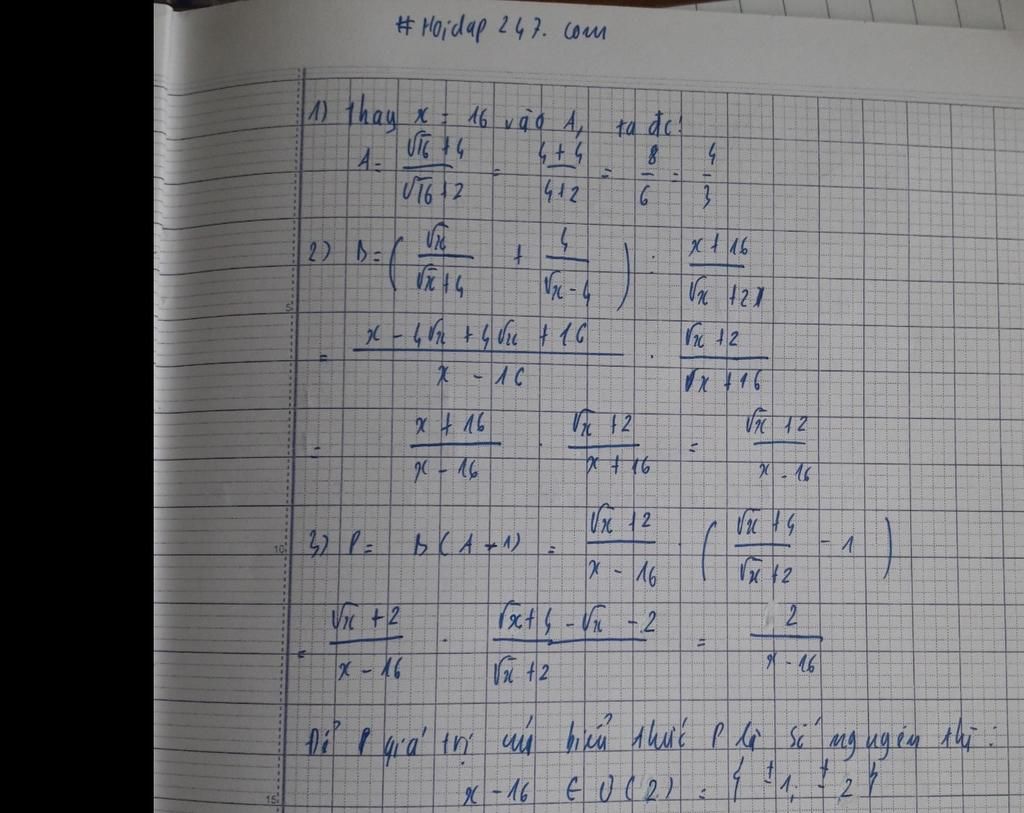 # Hoidap 247. com
1) thay x = 16 vào A, ta đc:
A = (√16 + 4)/(√16 + 2) = (4 + 4)/(4 + 2) = 8/6 = 4/3
2) B = ( √x/(√x + 4) + 4/(√x - 4) ) : (x + 16)/(√x + 2)
= (x - 4√x + 4√x + 16)/(x - 16) . (√x + 2)/(√x + 16)
= (x + 16)/(x - 16) . (√x + 2)/(x + 16) = (√x + 2)/(x - 16)
3) P = B (A - 1) = (√x + 2)/(x - 16) . ( (√x + 4)/(√x + 2) - 1 )
= (√x + 2)/(x - 16) . (√x + 4 - √x - 2)/(√x + 2) = 2/(x - 16)
Để P giá trị củ biểu thức P là số nguyên thì:
x - 16 ∈ Ư(2) = { ±1; ±2 }
5
10
15